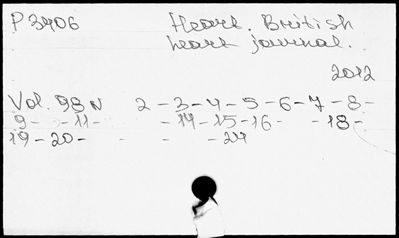 P 3406 Heart. British
heart journal.
2012
Vol. 98 N 2 - 3 - 4 - 5 - 6 - 7 - 8 -
9 - - 11 - - 14 - 15 - 16 - - 18 -
19 - 20 - - - - 24